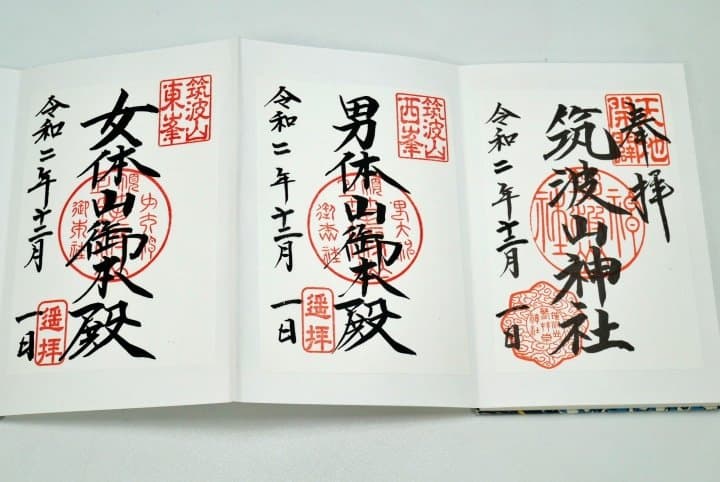 奉拝
天地開闢
筑波山神社
令和二年十二月一日
筑波山西峯
男体山御本殿
遥拝
令和二年十二月一日
筑波山東峯
女体山御本殿
遥拝
令和二年十二月一日